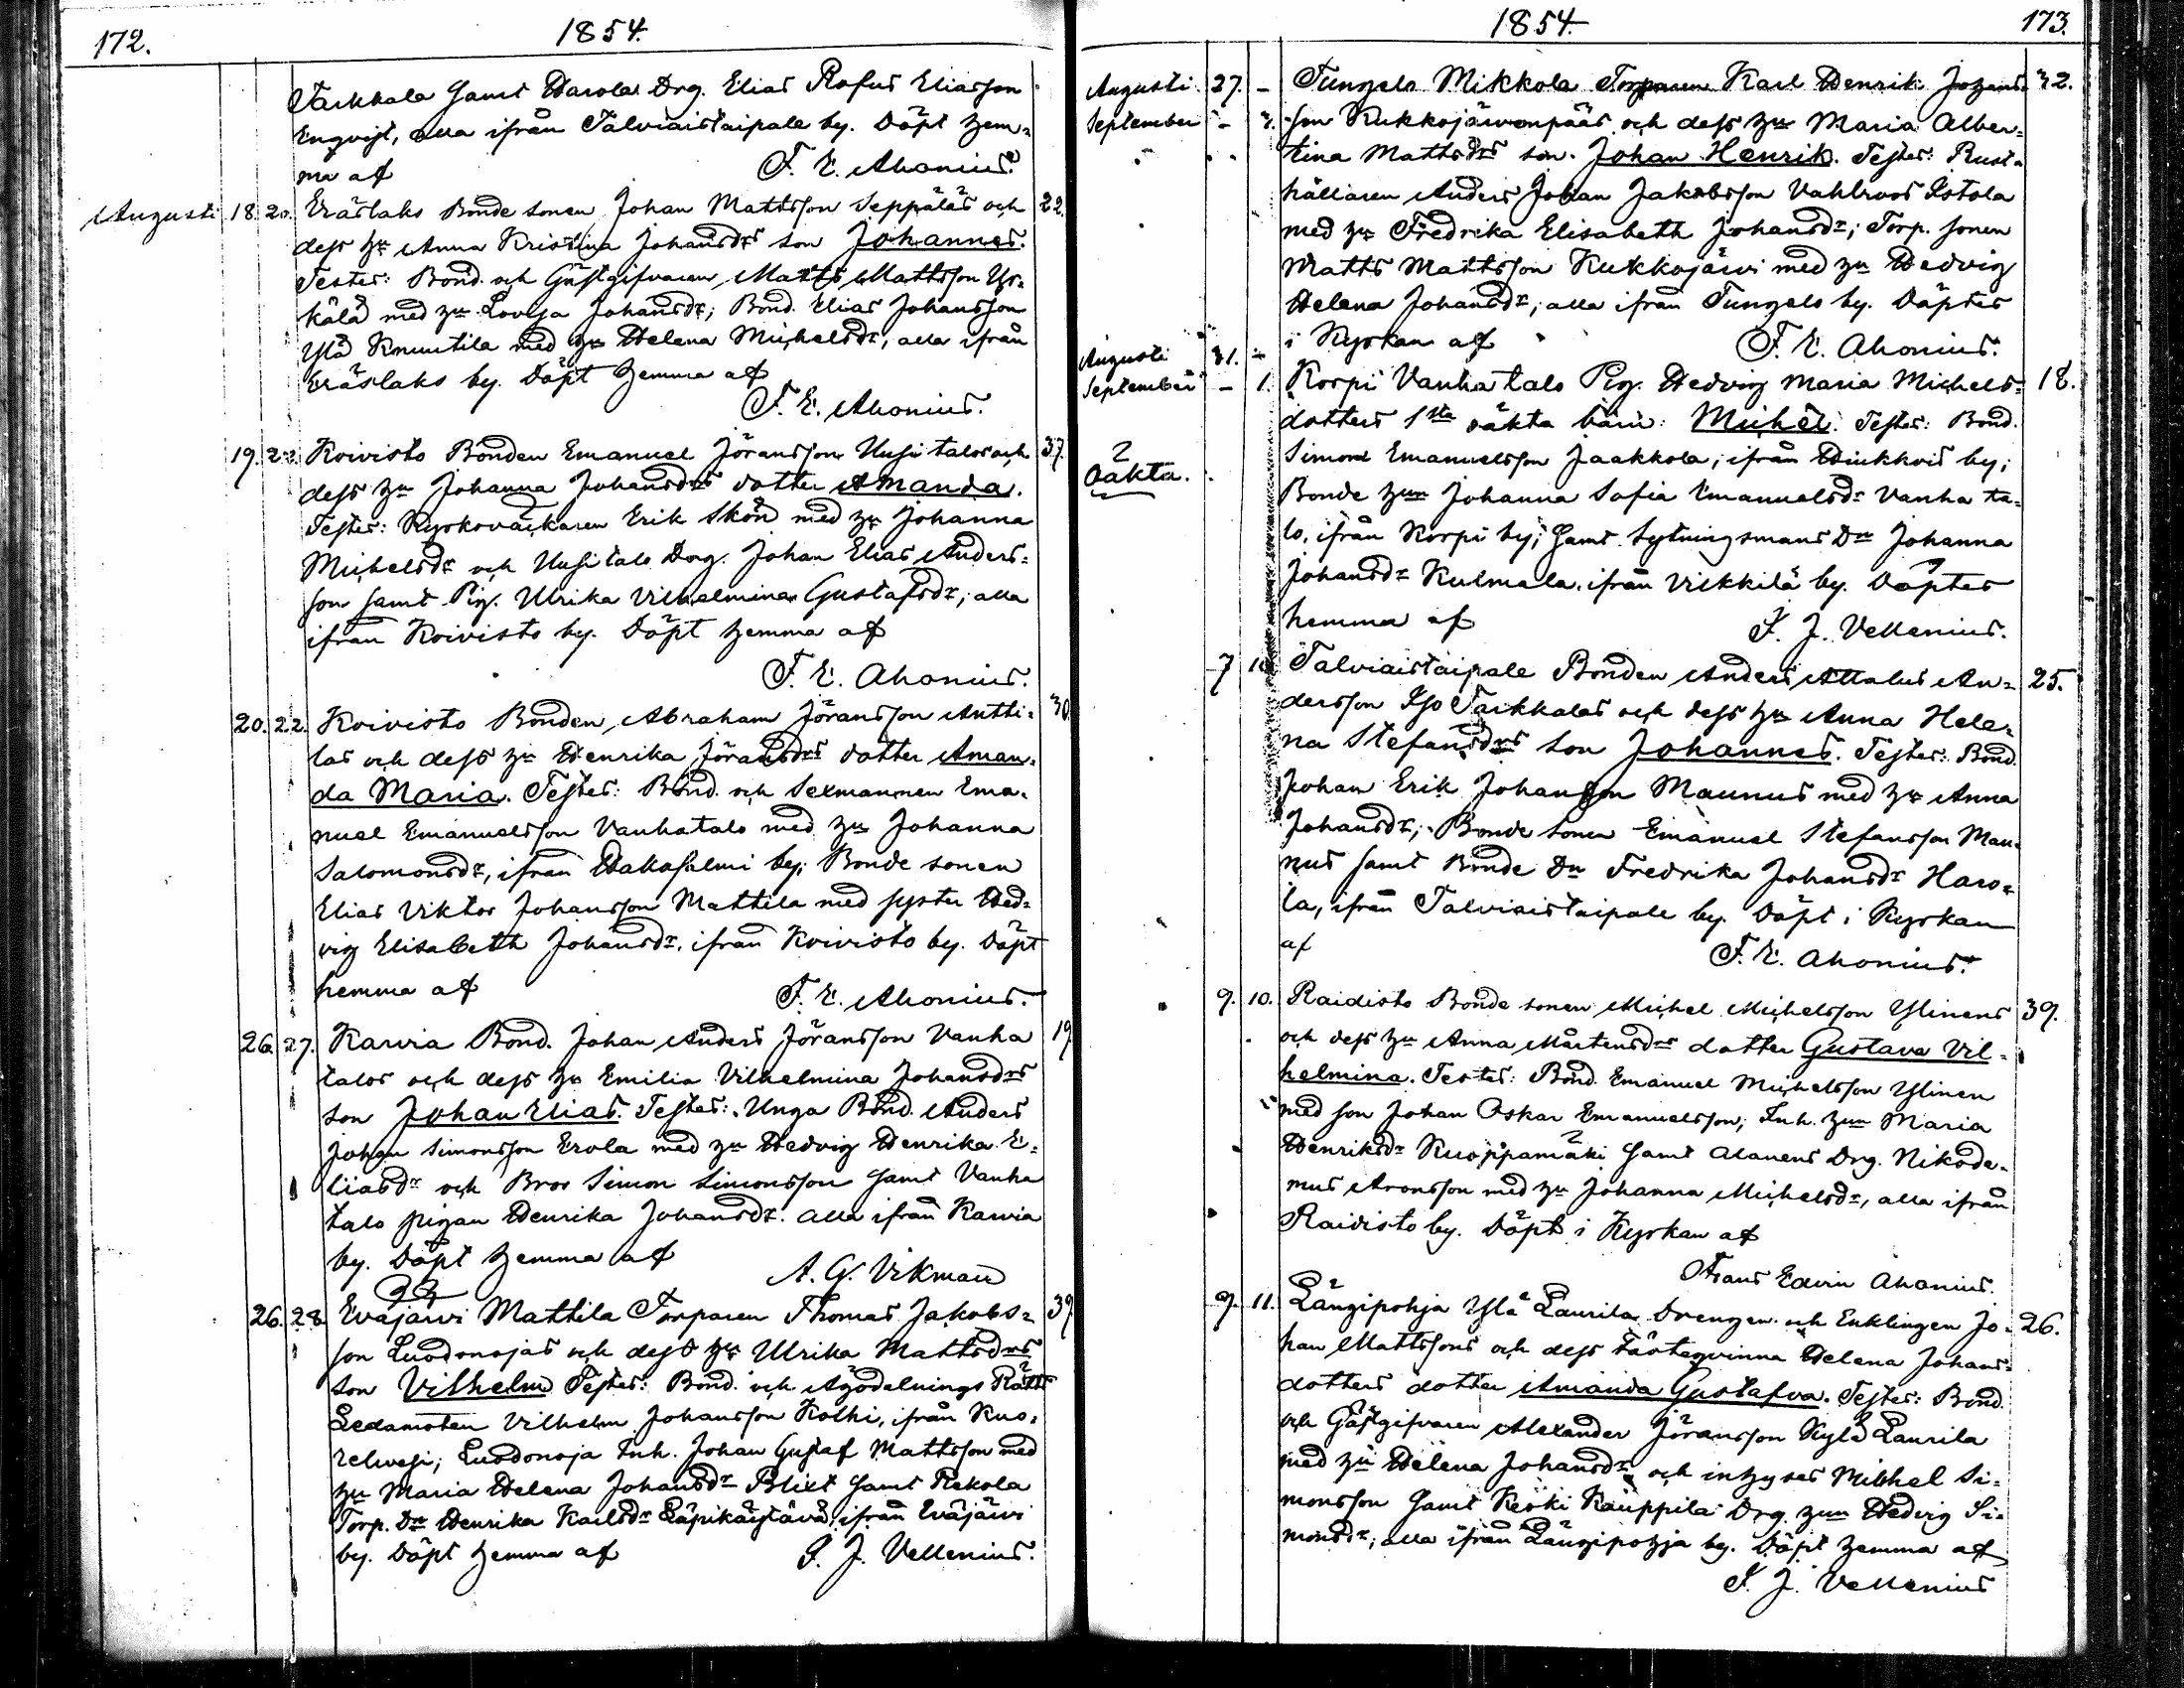 172.
1854.
Tarkkala samt Harola Drg. Elias Rofus Eliasson
Enqvist, alla ifrån Talviaistaipale by. Döpt hem=
ma af F. E. Ahonius.
Augusti 18. 20. Eräslaks Bonde sonen Johan Mattsson Seppäläs och 22.
dess hu Anna Kristina Johansdrs son Johannes.
Testes: Bond. och Gästgifvaren Matts Mattsson Ys=
kälä med hu Lovisa Johansdr; Bond. Elias Johansson
Ylä Knuutila med hu Helena Michelsdr, alla ifrån
Eräslaks by. Döpt hemma af
F. E. Ahonius.
19. 22. Koivisto Bonden Emanuel Jöransson Uusi talos och 37.
dess hu Johanna Johansdrs dotter Amanda.
Testes: Kyrkoväckaren Erik Skön med hu Johanna
Michelsdr och Uusi talo Drg. Johan Elias Anders=
son samt Pig. Ulrika Vilhelmina Gustafsdr, alla
ifrån Koivisto by. Döpt hemma af
F. E. Ahonius.
20. 22. Koivisto Bonden Abraham Jöransson Antti= 30
las och dess hu Henrika Jöransdrs dotter Aman=
da Maria. Testes: Bond. och Sexmannen Ema=
nuel Emanuelsson Vanhatalo med hu Johanna
Salomonsdr, ifrån Hakosalmi by; Bonde sonen
Elias Viktor Johansson Mattila med syster Hed=
vig Elisabeth Johansdr. ifrån Koivisto by. Döpt
hemma af F. E. Ahonius.
26. 27. Karvia Bond. Johan Anders Jöransson Vanha 19.
talos och dess hu Emilia Vilhelmina Johansdrs
son Johan Elias. Testes: Unga Bond. Anders
Johan Simonsson Erola med hu Hedvig Henrika E=
liasdr och Bror Simon Simonsson samt Vanha
talo pigan Henrika Johansdr. alla ifrån Karvia
by. Döpt hemma af
A. G. Vikman
26. 28. Eväjärvi Mattila Torparen Thomas Jakobs= 39.
son Luodonojas och dess hu Ulrika Mattsdrs
son Vilhelm Testes: Bond. och Ägodelnings Rätts
Ledamoten Vilhelm Johansson Kolhi, ifrån Kuo=
relvesi; Luodonoja Inh. Johan Gustaf Mattsson med
hu Maria Helena Johansdr Blixt samt Rekola
Torp. Dr Henrika Karlsdr Läpikäytävä, ifrån Eväjärvi
by. Döpt hemma af S. J. Vellenius.
1854.
173.
Augusti 27. - Tungelo Mikkola Torparen Karl Henrik Johans= 32.
September - 3. son Kukkojärvenpääs och dess hu Maria Alber=
tina Mattsdrs son. Johan Henrik. Testes: Rust=
hållaren Anders Johan Jakobsson Vahlroos Istola
med hu Fredrika Elisabeth Johansdr; Torp. sonen
Matts Mattsson Kukkojärvi med hu Hedvig
Helena Johansdr; alla ifrån Tungelo by. Döptes
i Kyrkan af F. E. Ahonius.
Augusti 31. -
September - 1. Korpi Vanha talo Pig. Hedvig Maria Michels= 18.
dotters 1sta oäkta barn: Michel. Testes: Bond.
Oäkta. Simon Emanuelsson Jaakkola, ifrån Hiukkois by;
Bonde hun Johanna Sofia Emanuelsdr Vanha ta=
lo, ifrån Korpi by; samt Sytningsmans Dr Johanna
Johansdr Kulmala, ifrån Vilkkilä by. Döptes
hemma af S. J. Vellenius.
7 10. Talviaistaipale Bonden Anders Attalus An= 25.
dersson Iso Tarkkalas och dess hu Anna Hele=
na Stefansdrs son Johannes. Testes: Bond.
Johan Erik Johansson Maunus med hu Anna
Johansdr; Bonde sonen Emanuel Stefansson Mau=
nus samt Bonde Dr Fredrika Johansdr Haro=
la, ifrån Talviaistaipale by. Döpt i Kyrkan
af F. E. Ahonius.
9. 10. Raidisto Bonde sonen Michel Michelsson Ylinens 39.
och dess hu Anna Mårtensdrs dotter Gustava Vil=
helmina. Testes: Bond. Emanuel Michelsson Ylinen
med son Johan Oskar Emanuelsson; Inh. hun Maria
Henriksdr Kuoppamäki samt Alanens Drg. Nikode=
mus Aronsson med hu Johanna Michelsdr, alla ifrån
Raidisto by. Döpt i Kyrkan af
Frans Edvin Ahonius.
9. 11. Längipohja Ylä Laurila Drengen och Enklingen Jo= 26.
han Mattssons och dess Fästeqvinna Helena Johans=
dotters dotter Amanda Gustafva. Testes: Bond.
och Gästgifvaren Alexander Jöransson Kylä Laurila
med hu Helena Johansdr och inhyses Mikhel Si=
monsson samt Keski Kauppila Drg. hun Hedvig Si=
monsdr; alla ifrån Längipohja by. Döpt hemma af
S. J. Vellenius